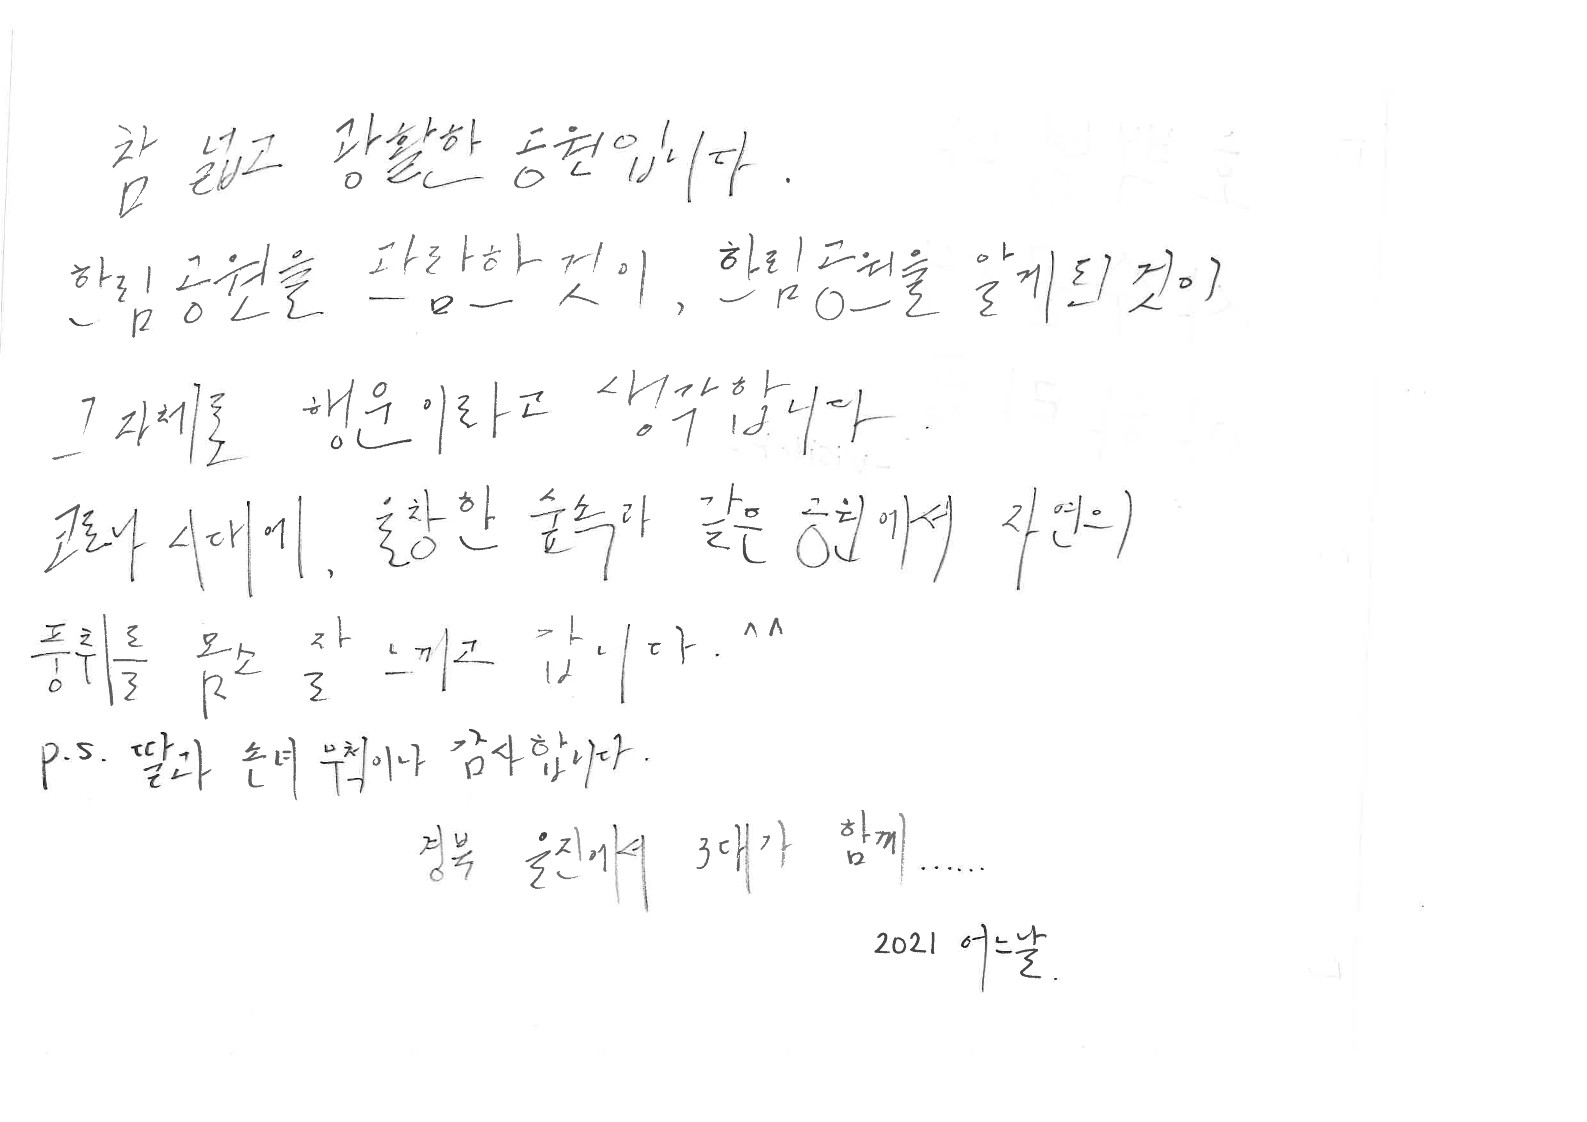 참 넓고 광활한 공원입니다.
한림공원을 관람한 것이, 한림공원을 알게된 것이
그 자체로 행운이라고 생각합니다.
코로나 시대에, 울창한 숲속과 같은 공원에서 자연의
풍취를 몸소 잘 느끼고 갑니다. ^^
p.s. 딸과 손녀 무척이나 감사합니다.
경북 울진에서 3대가 함께......
2021 어느날.